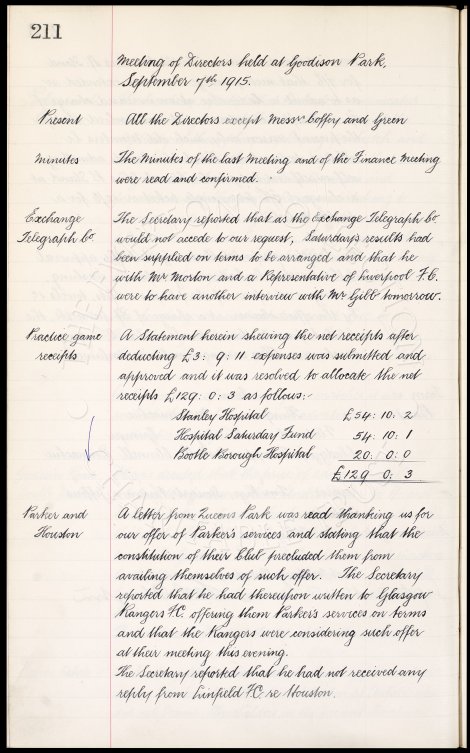 211
Meeting of Directors held at Goodison Park,
September 7th 1915.
Present All the Directors except Messrs Coffey and Green
Minutes The Minutes of the last Meeting and of the Finance Meeting
were read and confirmed.
Exchange The Secretary reported that as the Exchange Telegraph Co.
Telegraph Co. would not accede to our request, Saturday's results had
been supplied on terms to be arranged and that he
with Mr Morton and a Representative of Liverpool F.C.
were to have another interview with Mr Gibb tomorrow.
Practice game A Statement herein shewing the net receipts after
receipts deducting £3: 9: 11 expenses was submitted and
approved and it was resolved to allocate the net
receipts £129: 0: 3 as follows:-
Stanley Hospital £54: 10: 2
Hospital Saturday Fund 54: 10: 1
Bootle Borough Hospital 20: 0: 0
£129 0: 3
Parker and A letter from Queens Park was read thanking us for
Houston our offer of Parker's services and stating that the
constitution of their Club precluded them from
availing themselves of such offer. The Secretary
reported that he had thereupon written to Glasgow
Rangers F.C. offering them Parker's services on terms
and that the Rangers were considering such offer
at their meeting this evening.
The Secretary reported that he had not received any
reply from Linfield F.C. re Houston.